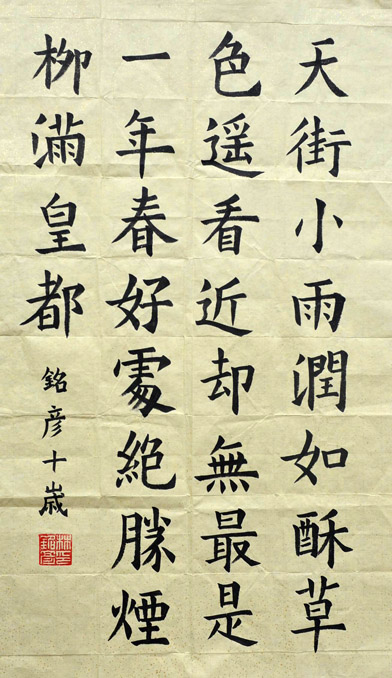 天街小雨潤如酥草
色遥看近却無最是
一年春好處絕勝煙
柳滿皇都
銘彦十歲